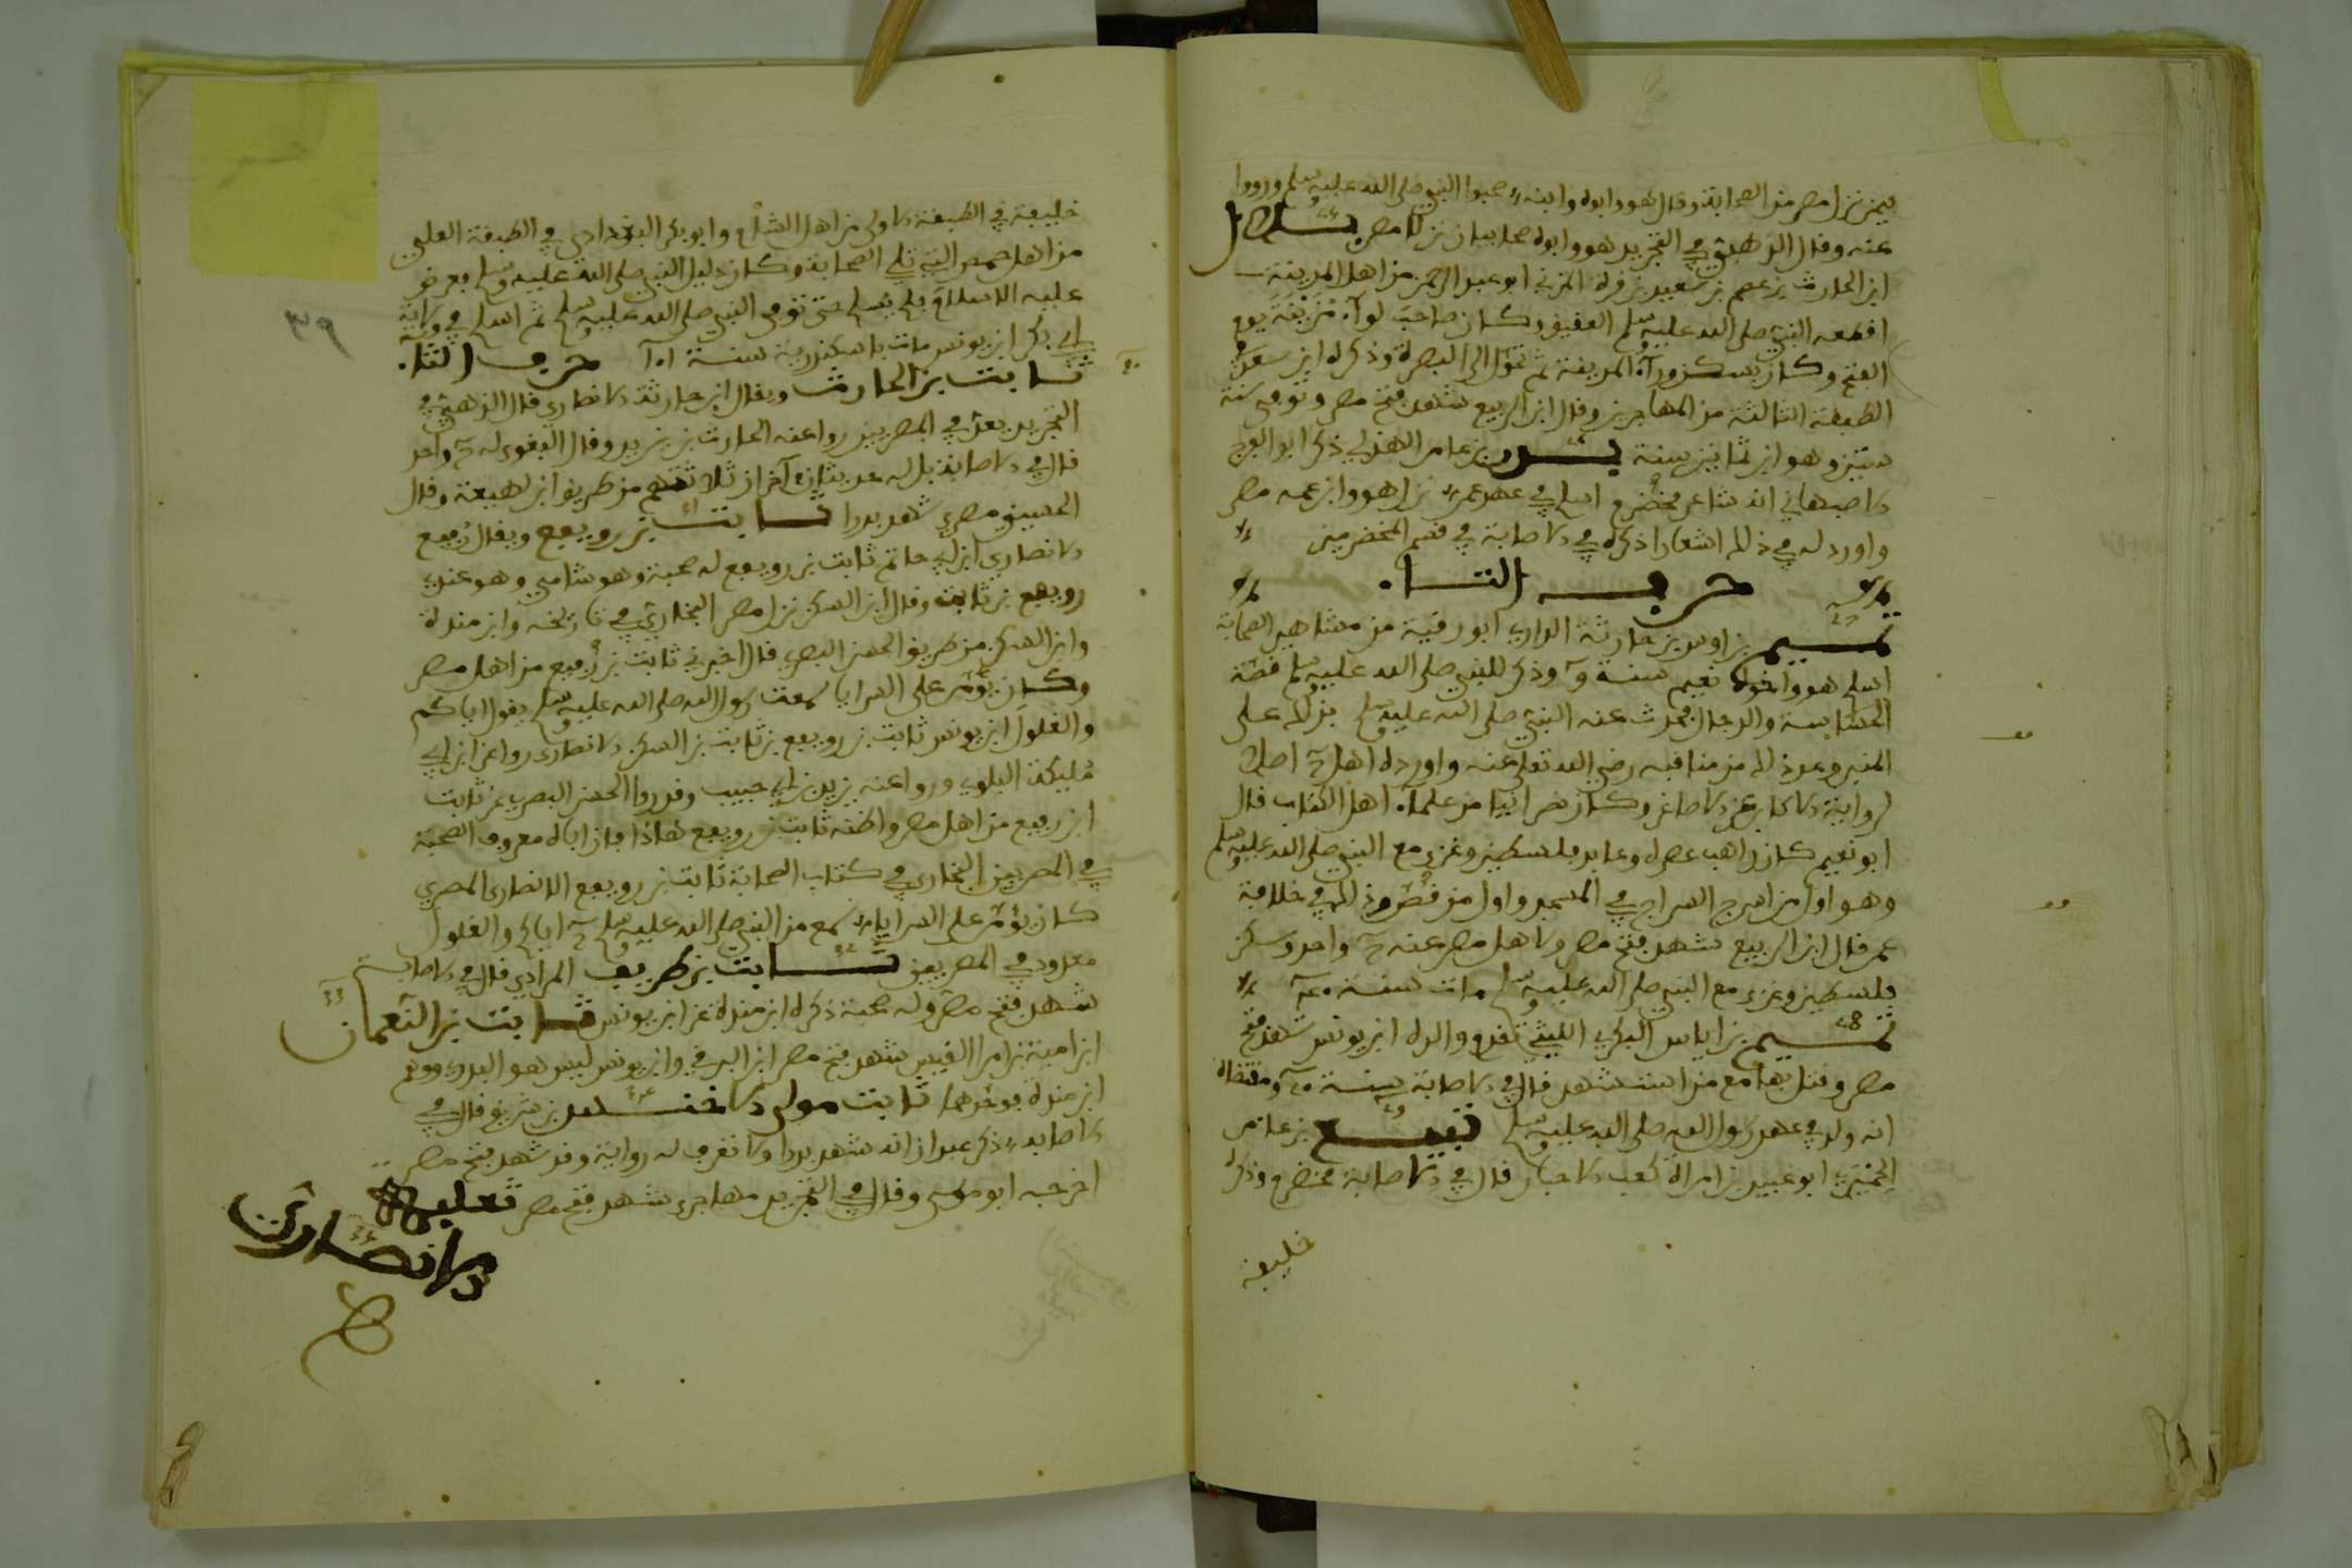 فيمن نزل مصر من الصحابة وقال هو وابوه وابنه صحبوا النبي صلى الله عليه وسلم ورووا
عنه وقال الذهبي في التجريد هو وابوه صحابيان نزلا مصر بلال
ابن الحارث بن عصم بن سعيد بن قرة المزني ابو عبد الرحمن من اهل المدينة
اقطعه النبي صلى الله عليه وسلم العقيق وكان صاحب لوآء مزينة يوم
الفتح وكان يسكن ورآء المدينة ثم تحول الى البصرة وذكره ابن سعد في
الطبقة الثالثة من المهاجرين وقال ابن الربيع شهد فتح مصر وتوفي سنة
ستين وهو ابن ثمانين سنة بن عامر الهذلي ذكر ابو الفرج
الاصبهاني انه شاعر مخضرم اسلم في عهد عمر نزل هو وابن عمه مصر
واورد له في ذلك اشعارا ذكره في الاصابة في قسم المخضرمين
حرف التاء
تميم بن اوس بن حارثة الداري ابو رقية من مشاهير الصحابة
اسلم هو واخوه نعيم سنة وذكر للنبي صلى الله عليه وسلم قصة
الجساسة والدجال فحدث عنه النبي صلى الله عليه وسلم بذلك على
المنبر وعد ذلك من مناقبه رضي الله تعلى عنه واورده اهل اصلا
لرواية الاكابر عن الاصاغر وكان نصرانيا من علمآء اهل الكتاب قال
ابو نعيم كان راهب عصره وعابد فلسطين وغزى مع النبي صلى الله عليه وسلم
وهو اول من اسرج السراج في المسجد واول من قص وذلك في خلافة
عمر قال ابن الربيع شهد فتح مصر ولاهل مصر عنه واحد وسكن
فلسطين وغزى مع النبي صلى الله عليه وسلم مات سنة
تميم بن اياس البكري الليثي تقدم والده ابن يونس شهد فتح
مصر وقتل بها مع من استشهد قال في الاصابة سنة ومقتضاه
انه ولد في عهد رسول الله صلى الله عليه وسلم تبيع بن عامر
الحميري ابو عبيد بن امراة كعب الاحبار قال في الاصابة مخضرم وذكره
خليفة
خليفة في الطبقة الاولى من اهل الشام وابو بكر البغدادي في الطبقة العليى
من اهل حمص التي تلي الصحابة وكان دليل النبي صلى الله عليه وسلم فعرض
عليه الاسلام فلم يسلم حتى توفي النبي صلى الله عليه وسلم ثم اسلم في ولاية
ابي بكر ابن يونس مات باسكندرية سنة حرف الثاء
ثابت بن الحارث ويقال ابن حارثة الانصاري قال الذهبي في
التجريد يعد في المصريين روا عنه الحارث بن يزيد وقال البغوي له واحد
قال في الاصابة بل له حديثان آخران ثلاثتهم من طريق ابن لهيعة وقال
الحسيني مصري شهد بدرا ثابت بن رويفع ويقال رفيع
الانصاري ابن ابي حاتم ثابت بن رويفع له صحبة وهو شامي وهو عندي
رويفع بن ثابت وقال ابن السكن نزل مصر البخاري في تاريخه وابن مندة
وابن السكن من طريق الحسن البصري قال اخبرني ثابت بن رفيع من اهل مصر
وكان يؤمر على السرايا سمعت رسول الله صلى الله عليه وسلم يقول اياكم
والغلول ابن يونس ثابت بن رويفع بن ثابت بن السكن الانصاري روا عن ابن ابي
مليكة البلوي وروا عنه يزيد بن ابي حبيب وقد روا الحسن البصري عن ثابت
ابن رفيع من اهل مصر واظنه ثابت بن رويفع هاذا فان اباه معروف الصحبة
في المصريين البخاري في كتاب الصحابة ثابت بن رويفع الانصاري المصري
كان يؤمر على السرايا سمع من النبي صلى الله عليه وسلم اياكم والغلول
معدود في المصريين ثابت بن طريف المرادي قال في الاصابة
شهد فتح مصر وله صحبة ذكره ابن مندة عن ابن يونس ثابت بن النعمان
ابن امية بن امرا القيس شهد فتح مصر ابن البرقي وابن يونس ليس هو البدري ووهم
ابن مندة فوحدهما ثابت مولى الاخنس بن شريق قال في
الاصابة ذكر عبدان انه شهد بدرا ولا تعرف له رواية وقد شهد فتح مصر
اخرجه ابو موسى وقال في التجريد مهاجري شهد فتح مصر ثعلبة
الانصاري
٣٩